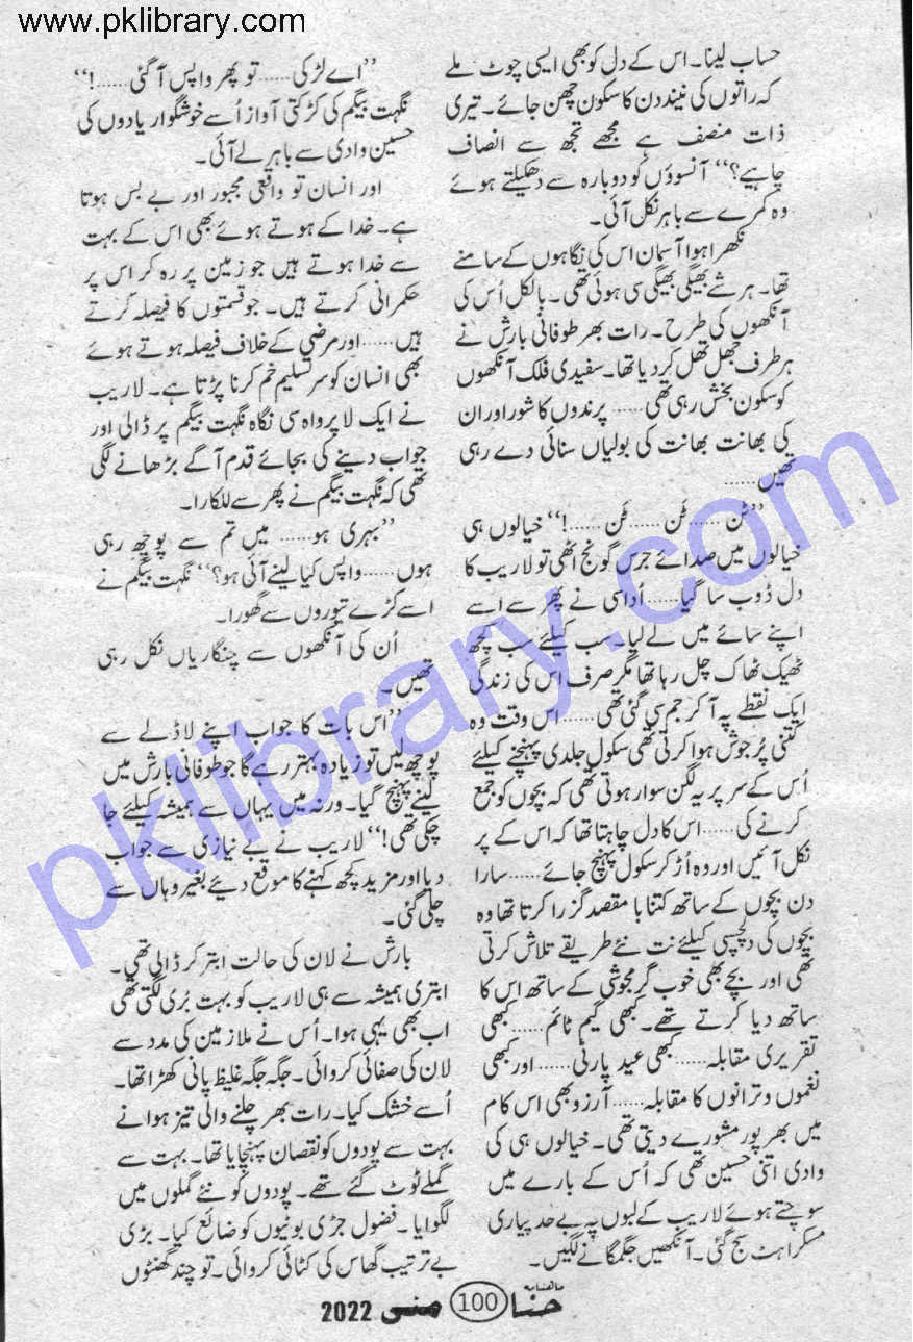 www.pklibrary.com
حساب لینا۔ اس کے دل کو بھی ایسی چوٹ ملے
کہ راتوں کی نیند دن کا سکون چھن جائے۔ تیری
ذات منصف ہے مجھے تجھ سے انصاف
چاہیے؟‘‘ آنسوؤں کو دوبارہ سے دھکیلتے ہوئے
وہ کمرے سے باہر نکل آئی۔
نکھرا ہوا آسمان اس کی نگاہوں کے سامنے
تھا۔ ہر شے بھیگی بھیگی سی ہوئی تھی۔ بالکل اُس کی
آنکھوں کی طرح۔ رات بھر طوفانی بارش نے
ہر طرف جھل تھل کر دیا تھا۔ سفیدی فلک آنکھوں
کو سکون بخش رہی تھی...... پرندوں کا شور اور ان
کی بھانت بھانت کی بولیاں سنائی دے رہی
تھیں......
’’ٹن ...... ٹن ...... ٹن ......!‘‘ خیالوں ہی
خیالوں میں صدائے جرس گونج اٹھی تو لاریب کا
دل ڈوب سا گیا...... اُداسی نے پھر سے اسے
اپنے سائے میں لے لیا۔ سب کیلئے سب کچھ
ٹھیک ٹھاک چل رہا تھا مگر صرف اس کی زندگی
ایک نقطے پہ آ کر جم سی گئی تھی...... اس وقت وہ
کتنی پُر جوش ہوا کرتی تھی سکول جلدی پہنچنے کیلئے
اُس کے سر پر یہ لگن سوار ہوتی تھی کہ بچوں کو جمع
کرنے کی...... اس کا دل چاہتا تھا کہ اس کے پر
نکل آئیں اور وہ اُڑ کر سکول پہنچ جائے...... سارا
دن بچوں کے ساتھ کتنا با مقصد گزرا کرتا تھا وہ
بچوں کی دلچسپی کیلئے نت نئے طریقے تلاش کرتی
تھی اور بچے بھی خوب گرمجوشی کے ساتھ اس کا
ساتھ دیا کرتے تھے۔ کبھی گیم ٹائم...... کبھی
تقریری مقابلہ...... کبھی عید پارٹی...... اور کبھی
نغموں و ترانوں کا مقابلہ...... آرزو بھی اس کام
میں بھرپور مشورے دیتی تھی۔ خیالوں ہی کی
وادی اتنی حسین تھی کہ اُس کے بارے میں
سوچتے ہوئے لاریب کے لبوں پہ بے حد پیاری
مسکراہٹ سج گئی۔ آنکھیں جگمگانے لگیں۔
’’اے لڑکی...... تو پھر واپس آ گئی......!‘‘
نگہت بیگم کی کڑکتی آواز اُسے خوشگوار یادوں کی
حسین وادی سے باہر لے آئی۔
اور انسان تو واقعی مجبور اور بے بس ہوتا
ہے۔ خدا کے ہوتے ہوئے بھی اس کے بہت
سے خدا ہوتے ہیں جو زمین پر رہ کر اس پر
حکمرانی کرتے ہیں۔ جو قسمتوں کا فیصلہ کرتے
ہیں...... اور مرضی کے خلاف فیصلہ ہوتے ہوئے
بھی انسان کو سر تسلیم خم کرنا پڑتا ہے۔ لاریب
نے ایک لا پرواہ سی نگاہ نگہت بیگم پر ڈالی اور
جواب دینے کی بجائے قدم آگے بڑھانے لگی
تھی کہ نگہت بیگم نے پھر سے للکارا۔
’’بہری ہو...... میں تم سے پوچھ رہی
ہوں...... واپس کیا لینے آئی ہو؟‘‘ نگہت بیگم نے
اسے کڑے تیوروں سے گھورا۔
اُن کی آنکھوں سے چنگاریاں نکل رہی
تھیں۔
’’اس بات کا جواب اپنے لاڈلے سے
پوچھ لیں تو زیادہ بہتر رہے گا جو طوفانی بارش میں
لینے پہنچ گیا۔ ورنہ میں یہاں سے ہمیشہ کیلئے جا
چکی تھی!‘‘ لاریب نے بے نیازی سے جواب
دیا اور مزید کچھ کہنے کا موقع دیئے بغیر وہاں سے
چلی گئی۔
بارش نے لان کی حالت ابتر کر ڈالی تھی۔
ابتری ہمیشہ سے ہی لاریب کو بہت بُری لگتی تھی
اب بھی یہی ہوا۔ اُس نے ملازمین کی مدد سے
لان کی صفائی کروائی۔ جگہ جگہ غلیظ پانی کھڑا تھا۔
اُسے خشک کیا۔ رات بھر چلنے والی تیز ہوا نے
بہت سے پودوں کو نقصان پہنچایا تھا۔ بہت سے
گملے ٹوٹ گئے تھے۔ پودوں کو نئے گملوں میں
لگوایا۔ فضول جڑی بوٹیوں کو ضائع کیا۔ بڑی
بے ترتیب گھاس کی کٹائی کروائی۔ تو چند گھنٹوں
ماہنامہ حنا 100 مئی 2022
pklibrary.com